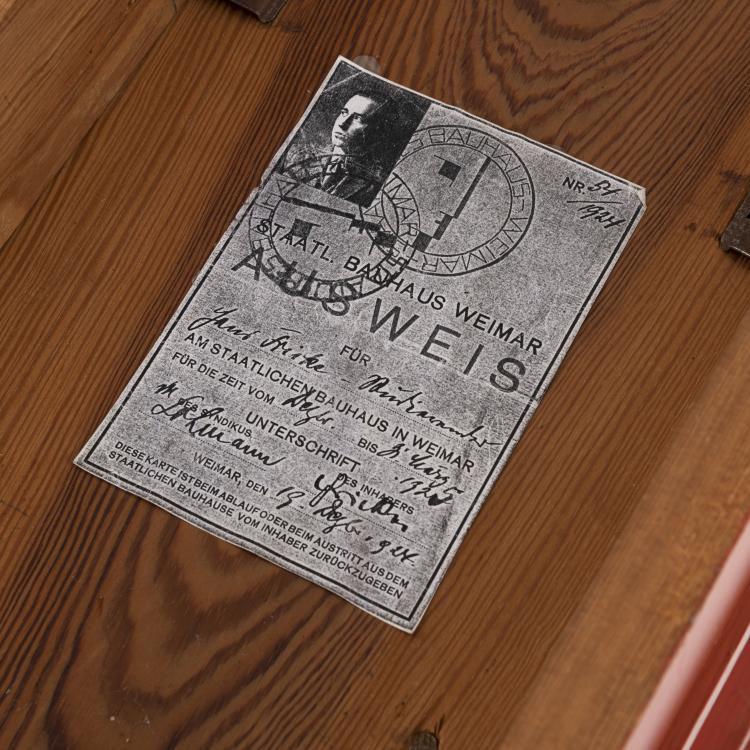 BAUHAUS-WEIMAR
NR. 54
/1924
STAATL. BAUHAUS WEIMAR
AUSWEIS
FÜR
Hans Fricke –
AM STAATLICHEN BAUHAUS IN WEIMAR
FÜR DIE ZEIT VOM Dezbr. BIS 3. März 1925
UNTERSCHRIFT
DES SYNDIKUS DES INHABERS
WEIMAR, DEN 19. Dezbr. 1924.
DIESE KARTE IST BEIM ABLAUF ODER BEIM AUSTRITT AUS DEM
STAATLICHEN BAUHAUSE VOM INHABER ZURÜCKZUGEBEN